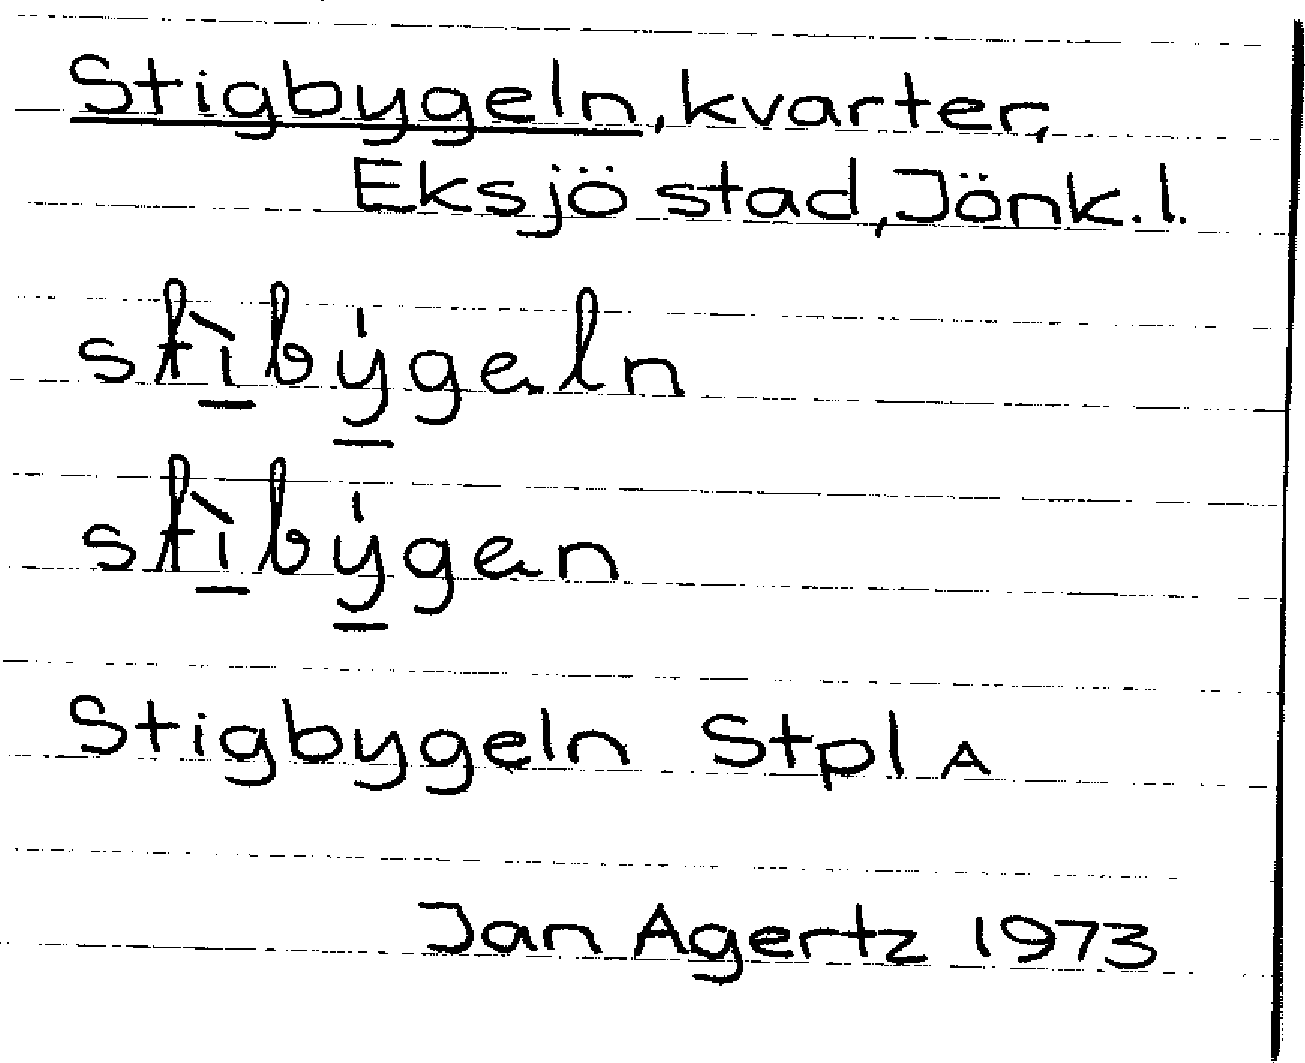 Stigbygeln, kvarter,
Eksjö stad, Jönk. l.
stì̲bý̲gəln
stì̲bý̲gən
Stigbygeln Stpl A
Jan Agertz 1973